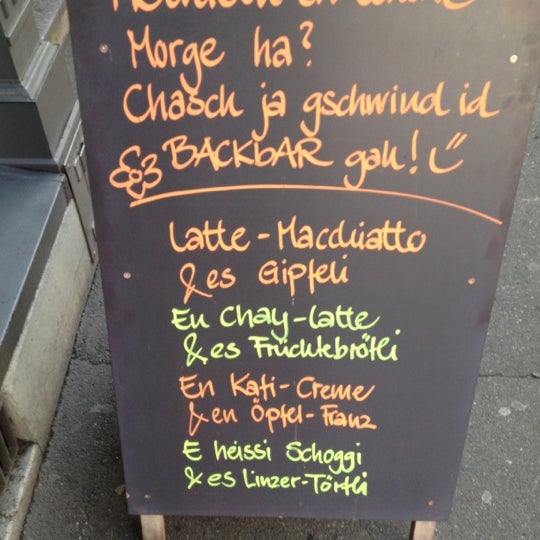 Morge ha?
Chasch ja gschwind id
BACKbAR gah!
Latte-Macchiatto
& es Gipfeli
En Chay-Latte
& es Früchtebrötli
En Kafi-Creme
& en Öpfel-Franz
E heissi Schoggi
& es Linzer-Törtli